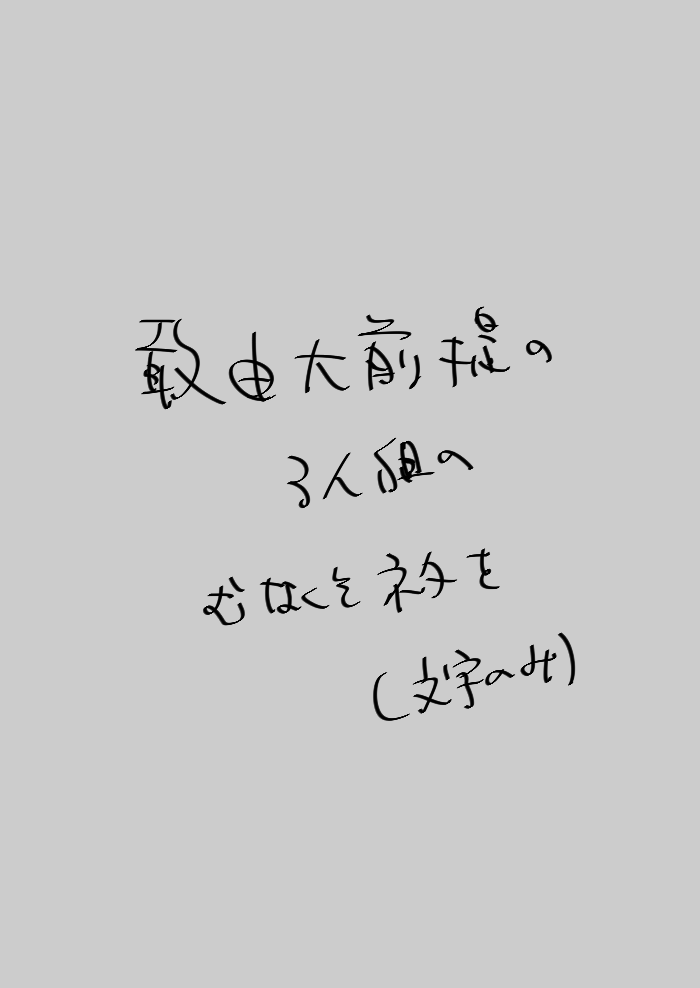 敢由大前提の
3人組の
むなくそネタを
(文字のみ)